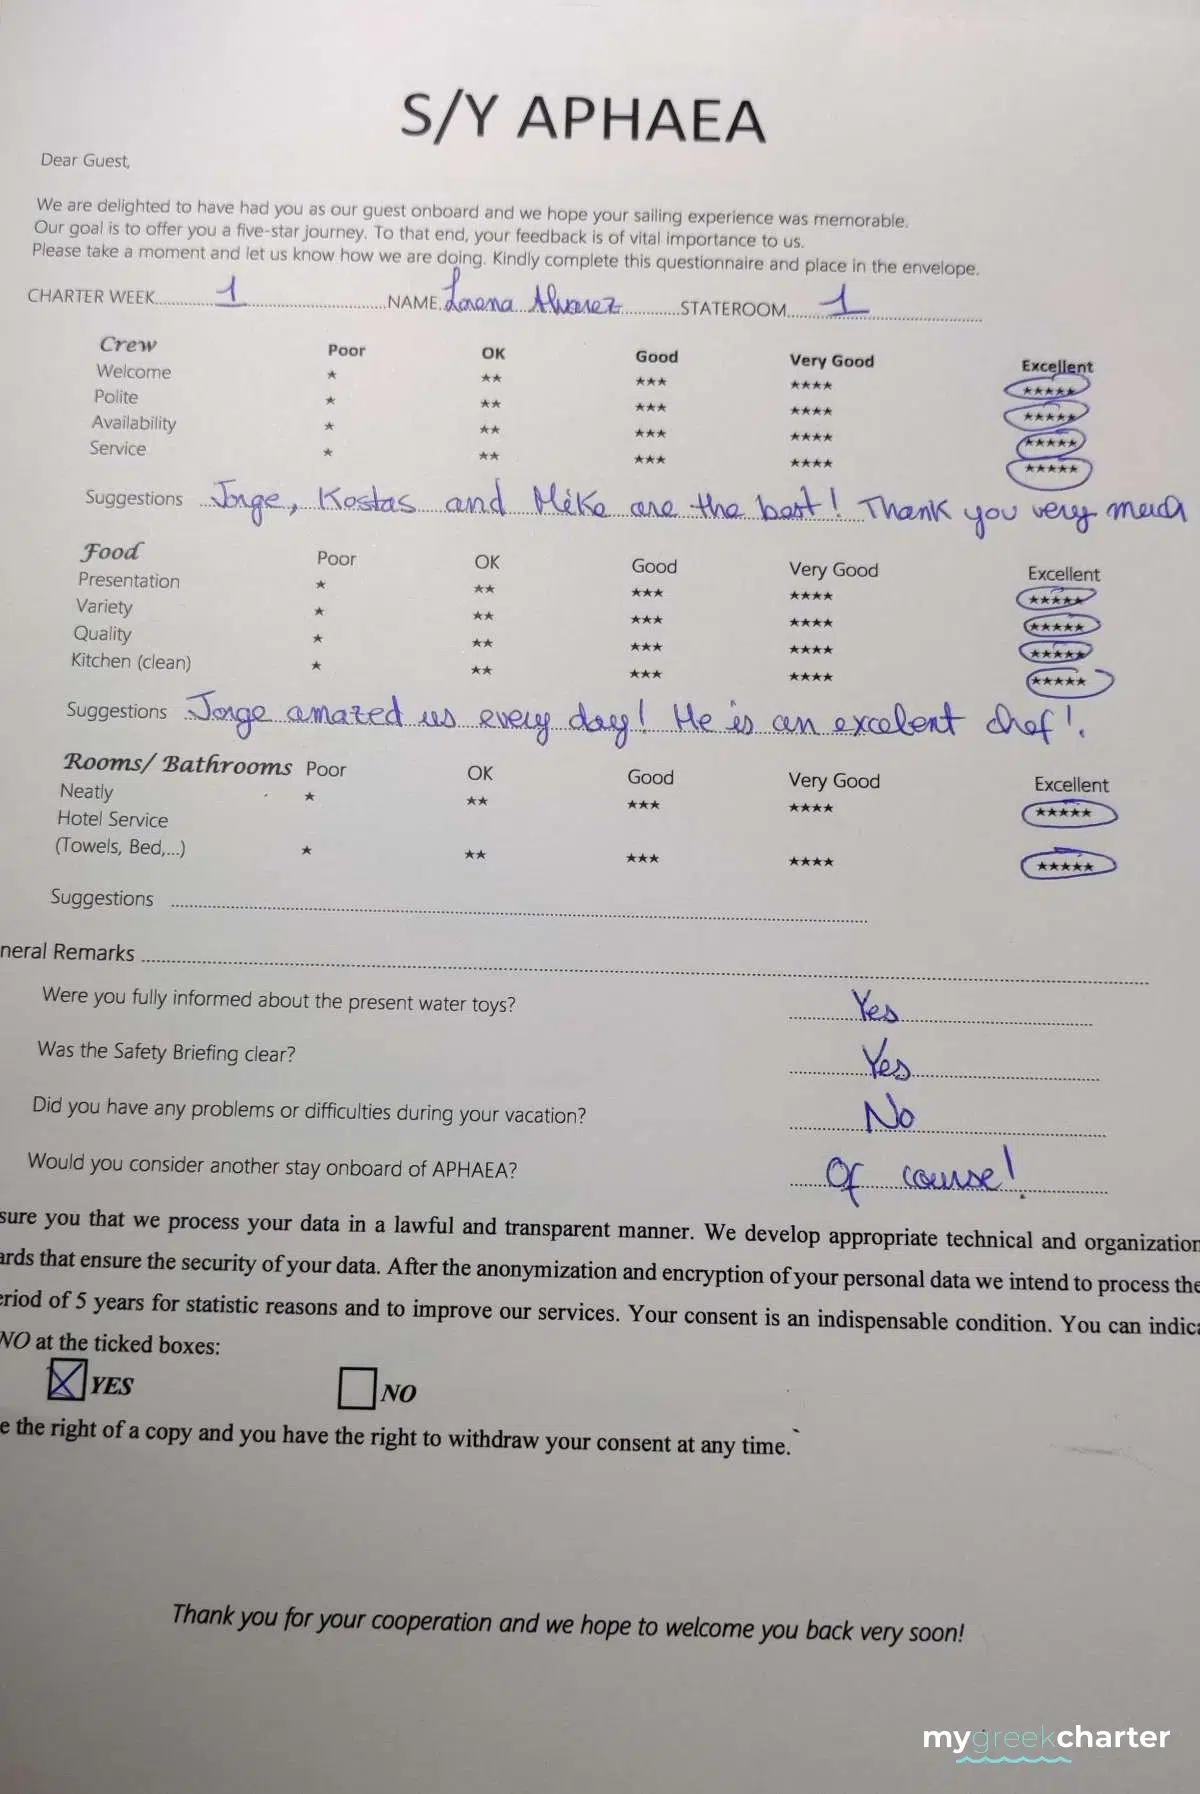 S/Y APHAEA
Dear Guest,
We are delighted to have had you as our guest onboard and we hope your sailing experience was memorable.
Our goal is to offer you a five-star journey. To that end, your feedback is of vital importance to us.
Please take a moment and let us know how we are doing. Kindly complete this questionnaire and place in the envelope.
CHARTER WEEK 1 NAME Lorena Alvarez STATEROOM 1
Crew Poor OK Good Very Good Excellent
Welcome ★ ★★ ★★★ ★★★★ ★★★★★
Polite ★ ★★ ★★★ ★★★★ ★★★★★
Availability ★ ★★ ★★★ ★★★★ ★★★★★
Service ★ ★★ ★★★ ★★★★ ★★★★★
Suggestions Jorge, Kostas and Mike are the best! Thank you very much
Food Poor OK Good Very Good Excellent
Presentation ★ ★★ ★★★ ★★★★ ★★★★★
Variety ★ ★★ ★★★ ★★★★ ★★★★★
Quality ★ ★★ ★★★ ★★★★ ★★★★★
Kitchen (clean) ★ ★★ ★★★ ★★★★ ★★★★★
Suggestions Jorge amazed us every day! He is an excelent chef!.
Rooms/ Bathrooms Poor OK Good Very Good Excellent
Neatly ★ ★★ ★★★ ★★★★ ★★★★★
Hotel Service
(Towels, Bed,...) ★ ★★ ★★★ ★★★★ ★★★★★
Suggestions
neral Remarks
Were you fully informed about the present water toys? Yes
Was the Safety Briefing clear? Yes
Did you have any problems or difficulties during your vacation? No
Would you consider another stay onboard of APHAEA? Of course!
sure you that we process your data in a lawful and transparent manner. We develop appropriate technical and organization
ards that ensure the security of your data. After the anonymization and encryption of your personal data we intend to process the
eriod of 5 years for statistic reasons and to improve our services. Your consent is an indispensable condition. You can indica
NO at the ticked boxes:
YES NO
e the right of a copy and you have the right to withdraw your consent at any time.
Thank you for your cooperation and we hope to welcome you back very soon!
mygreekcharter